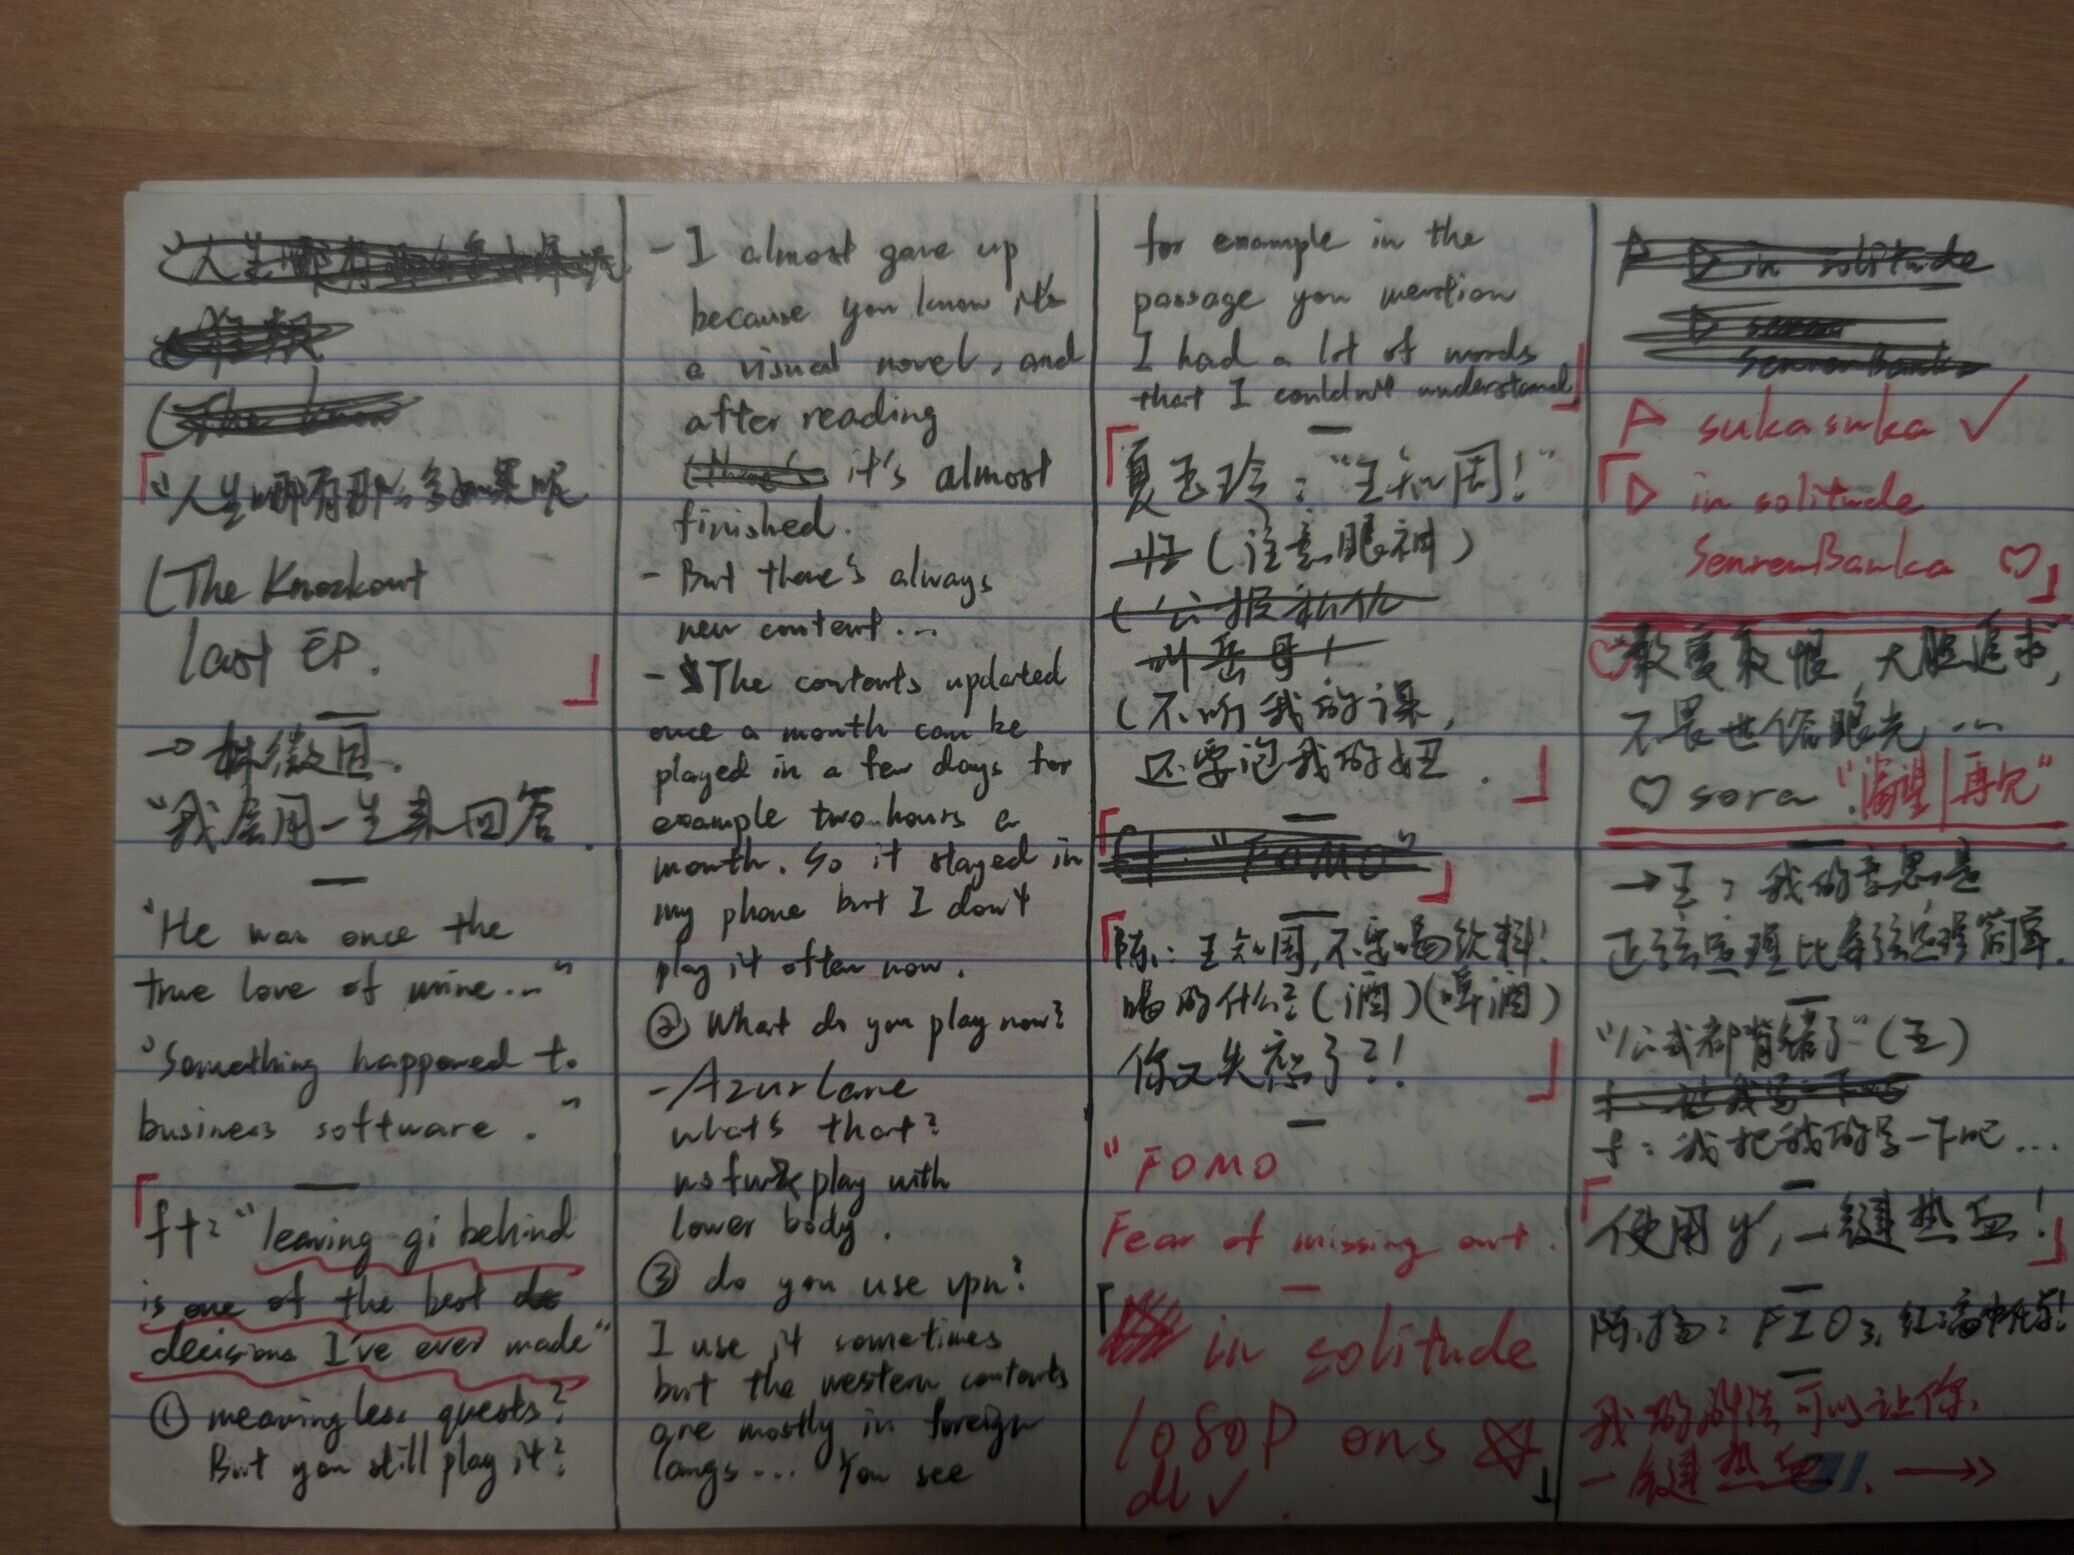 "人生哪有那么多如果呢
(The Knockout
last EP.
→ 林徽因.
"我会用一生来回答.
"He was once the
true love of mine..."
"Something happened to
business software."
ft: "leaving gi behind
is one of the best
decisions I've ever made"
① meaningless quests?
But you still play it?
- I almost gave up
because you know it's
a visual novel, and
after reading
it's almost
finished.
- But there's always
new content...
- The contents updated
once a month can be
played in a few days for
example two hours a
month. So it stayed in
my phone but I don't
play it often now.
② What do you play now?
- Azurlane
what's that?
play with
lower body.
③ do you use vpn?
I use it sometimes
but the western contents
are mostly in foreign
langs... You see
for example in the
passage you mention
I had a lot of words
that I couldn't understand
夏玉玲: "王知周!"
(注意眼神)
(不听我的课,
还要泡我的妞.
陈: 王知周,不要喝饮料!
喝的什么?(酒)(啤酒)
你又失恋了?!
"FOMO
Fear of missing out.
in solitude
1080P ons
dl ✓
P sukasuka ✓
D in solitude
SenrenBanka ♡
♡"敢爱敢恨,大胆追求,
不畏世俗眼光...
♡ sora "渴望|再见"
→王: 我的意思是
正弦定理比余弦定理简单.
"公式都背错了"(王)
f: 我把我的写一下吧...
使用y',一键热血!
陈扬: FIO3,
我的解法可以让你,
一键热血. →